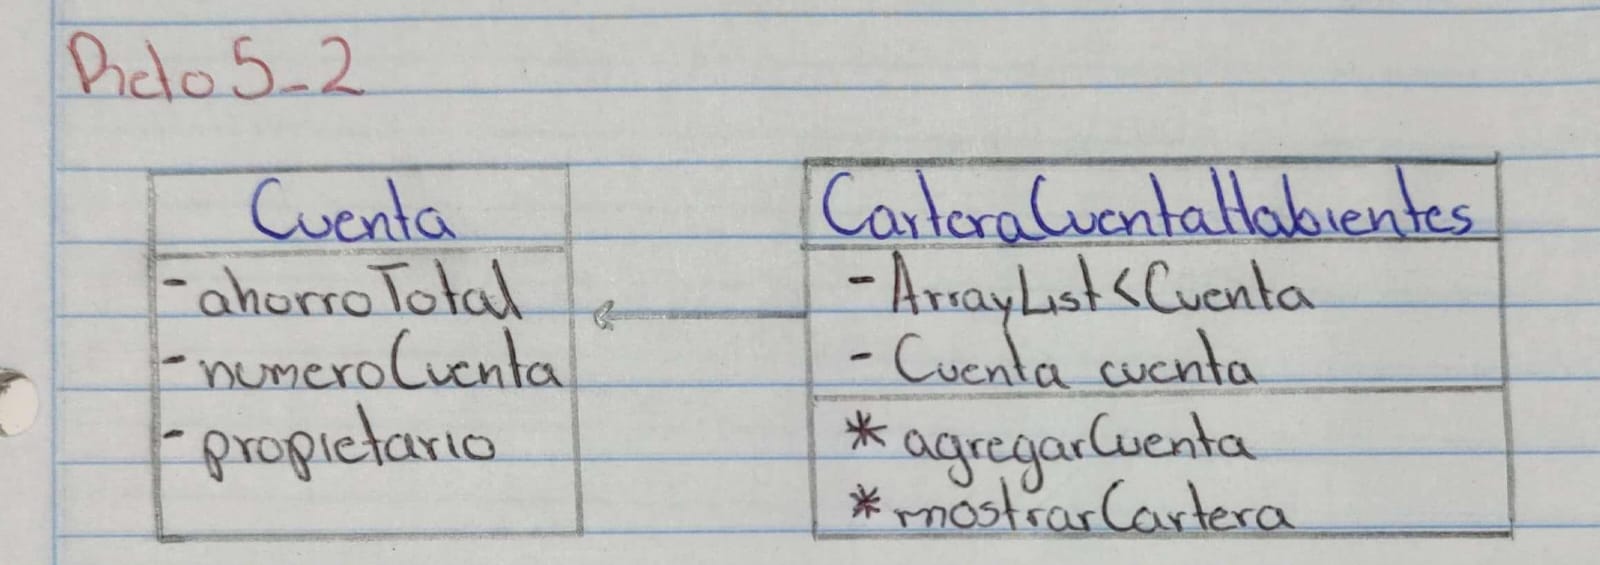 Reto 5-2
Cuenta
- ahorroTotal
- numeroCuenta
- propietario
CarteraCuentaHabientes
- ArrayList<Cuenta
- Cuenta cuenta
* agregarCuenta
* mostrarCartera